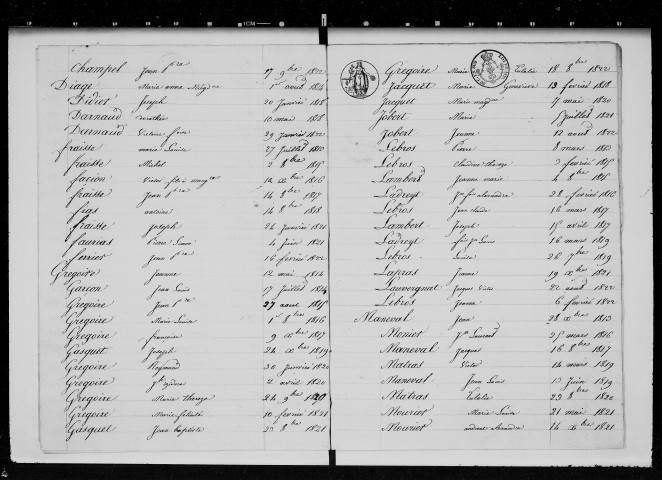 Champel Jean P.re 17 9bre 1822
Diage Marie anne 1r aout 1814
Didier Joseph 20 Janvier 1818
Darnaud 10 mai 1818
Darnaud 29 Janvier 1822
fraisse marie Louise 27 Juillet 1810
fraisse Michel 2 8bre 1815
Victor 12 xbre 1816
fraisse Jean P.re 14 8bre 1817
fias antoine 14 8bre 1818
fraisse Joseph 24 Janvier 1821
faurias Pierre Louis 4 Juin 1821
ferrier Jean P.re 16 fevrier 1822
Gregoire Jeanne 12 mai 1814
Garcon Jean Louis 17 Juillet 1814
Gregoire Jean P.re 27 aout 1815
Gregoire Marie Louise 1r 8bre 1816
Gregoire françoise 9 xbre 1817
Gasquet Joseph 24 xbre 1819
Gregoire 30 Janvier 1820
Gregoire 2 avril 1820
Gregoire Marie therese 24 9bre 1820
Gregoire Marie felicité 10 fevrier 1821
Gasquet Jean baptiste 23 8bre 1821
Gregoire Marie Eulalie 18 8bre 1822
Jacquet Marie Genevieve 13 fevrier 1818
Jacquet Marie 7 mai 1820
Jobert Marie Juillet 1821
Jobert Jeanne 12 aout 1822
Lebros Pierre 8 mars 1813
Lebros Claudine therese 2 fevrier 1815
Lambert Jeanne marie 4 8bre 1815
Ladreyt alexandre 28 fevrier 1816
Lebros Jean claude 16 mars 1817
Lambert Joseph 15 avril 1817
Ladreyt Louis 16 mars 1819
Lebros Louise 26 7bre 1819
Lapras Jeanne 19 xbre 1821
Lauvergnat Jaques Victor 22 aout 1822
Lebros Jeanne 6 fevrier 1822
Maneval Jean 28 xbre 1813
Monier Laurent 25 mars 1816
Maneval Jacques 16 8bre 1817
Matras Victor 14 mars 1819
Maneval Jean Louis 13 Juin 1819
Matras Eulalie 22 8bre 1820
Mourier Marie Louise 21 mai 1821
Mourier 14 xbre 1821